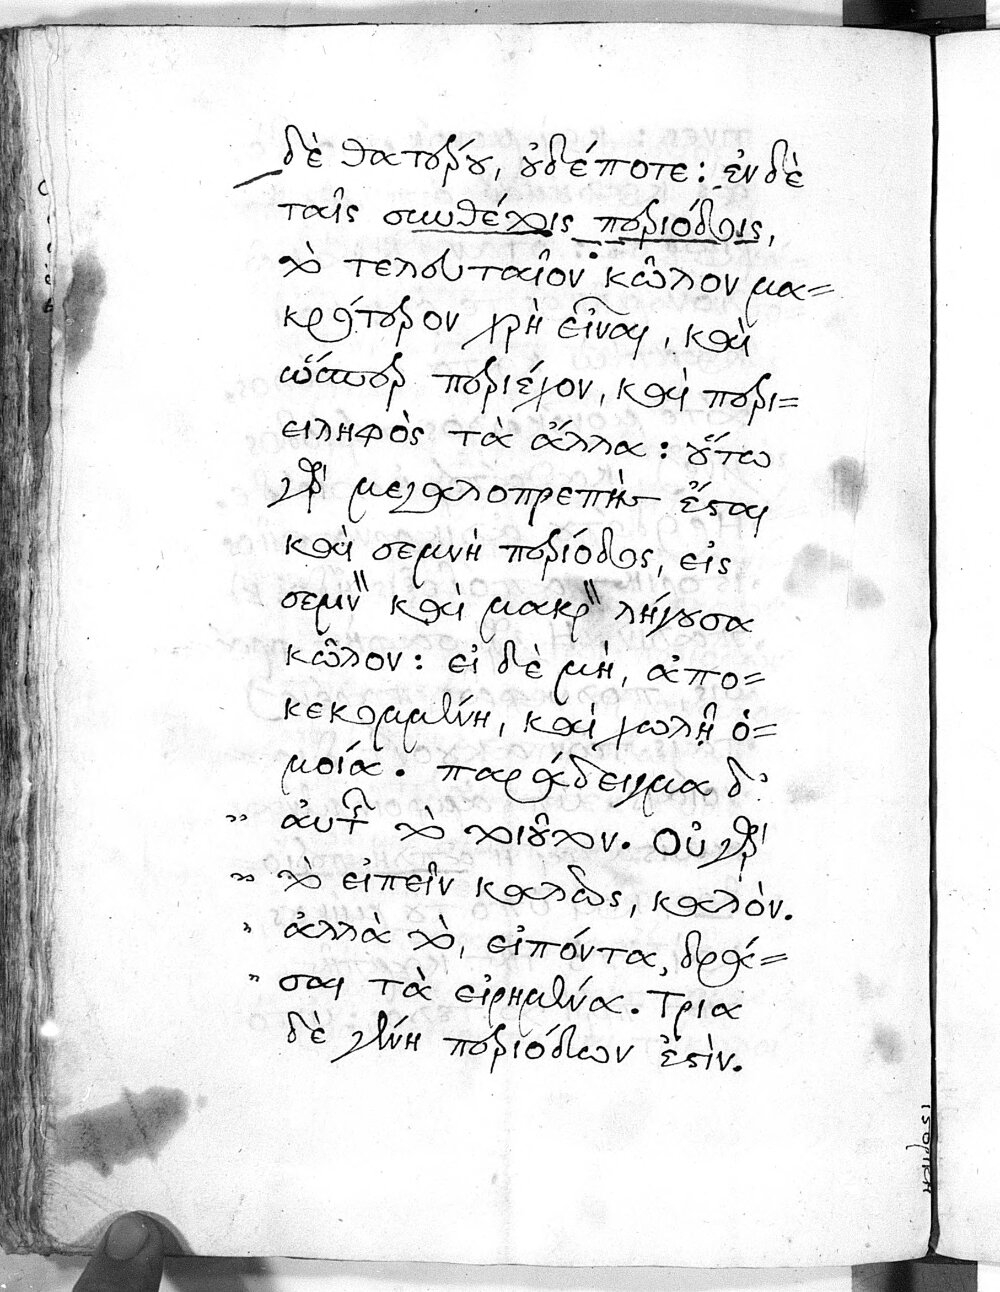 δὲ θατέρου, οὐδέποτε: ἐν δὲ
ταῖς συνθέτοις περιόδοις,
τὸ τελευταῖον κῶλον μα=
κρότερον χρὴ εἶναι, καὶ
ὥσπερ περιέχον, καὶ περι=
ειληφὸς τὰ ἄλλα: οὕτω
γὰρ μεγαλοπρεπὴς ἔσται
καὶ σεμνὴ περίοδος, εἰς
σεμνὸν καὶ μακρὸν λήγουσα
κῶλον: εἰ δὲ μὴ, ἀπο=
κεκομμένη, καὶ χωλῇ ὁ=
μοία. παράδειγμα δ'
" αὐτῆς τὸ τοιοῦτον. Οὐ γὰρ
" τὸ εἰπεῖν καλῶς, καλόν.
" ἀλλὰ τὸ, εἰπόντα, δρᾶ=
" σαι τὰ εἰρημένα. Τρία
δὲ γένη περιόδων ἐστὶν.
ἱστορικὴ